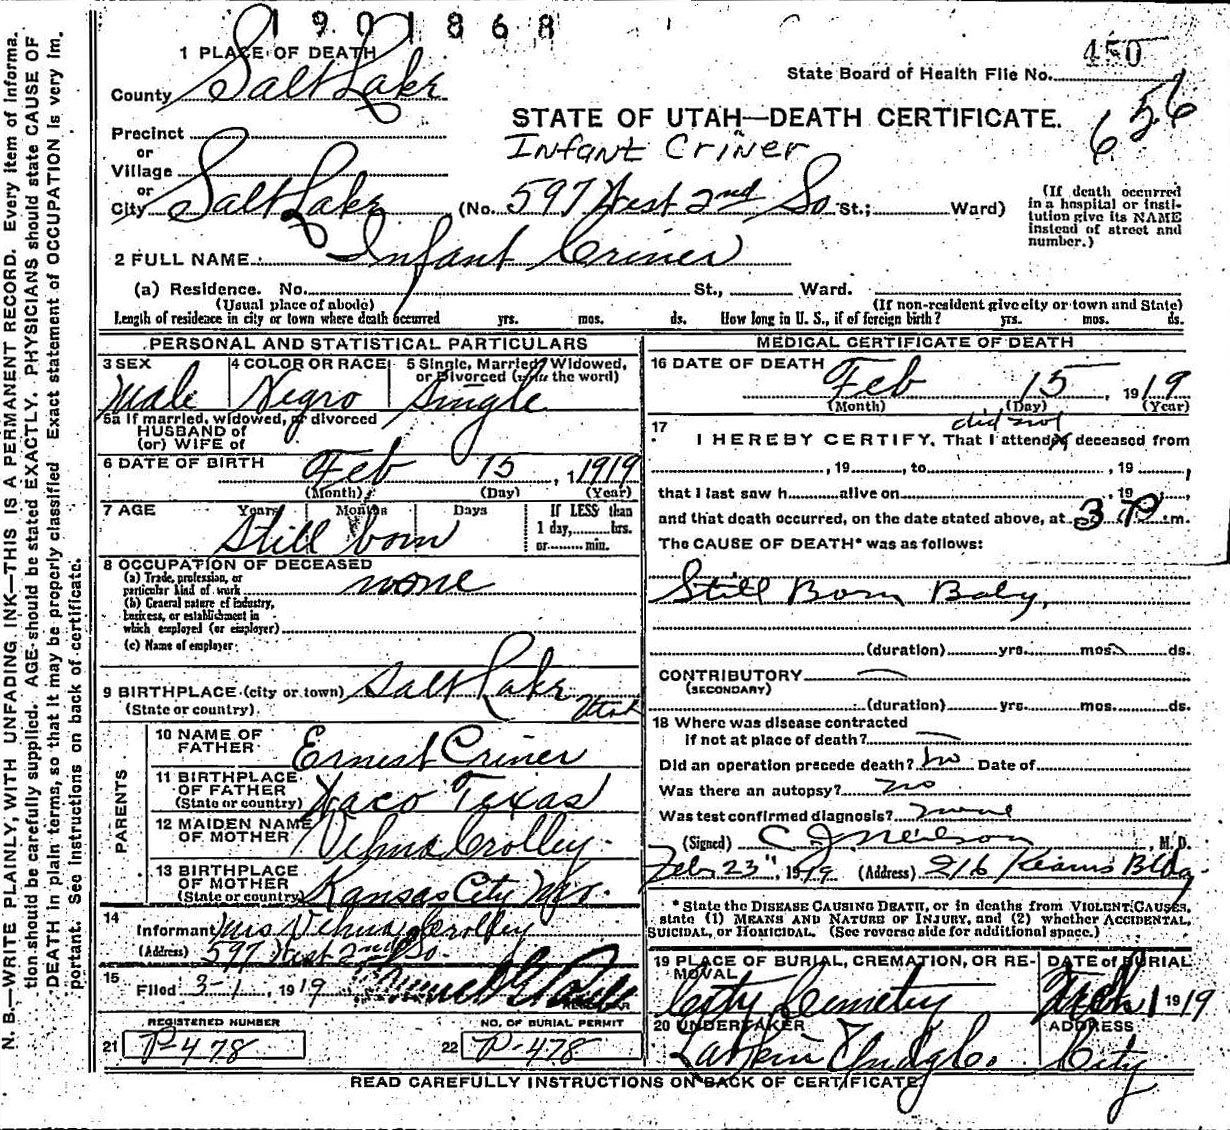 1901868
450
State Board of Health File No.
656
1 PLACE OF DEATH
County Salt Lake
STATE OF UTAH—DEATH CERTIFICATE.
Precinct
or
Infant Criner
Village
or
City Salt Lake (No. 597 West 2nd So St.; Ward)
(If death occurred in a hospital or insti-
tution give its NAME
instead of street and
number.)
2 FULL NAME Infant Criner
(a) Residence. No. St., Ward.
(Usual place of abode) (If non-resident give city or town and State)
Length of residence in city or town where death occurred yrs. mos. ds. How long in U. S., if of foreign birth? yrs. mos. ds.
PERSONAL AND STATISTICAL PARTICULARS
3 SEX 4 COLOR OR RACE 5 Single, Married, Widowed,
or Divorced (write the word)
Male Negro Single
5a If married, widowed, or divorced
HUSBAND of
(or) WIFE of
6 DATE OF BIRTH Feb 15, 1919
(Month) (Day) (Year)
7 AGE Years Months Days If LESS than
1 day, hrs.
or min.
Still born
8 OCCUPATION OF DECEASED
(a) Trade, profession, or
particular kind of work none
(b) General nature of industry,
business, or establishment in
which employed (or employer)
(c) Name of employer
9 BIRTHPLACE (city or town) Salt Lake
(State or country) Utah
PARENTS
10 NAME OF
FATHER Ernest Criner
11 BIRTHPLACE
OF FATHER
(State or country) Waco Texas
12 MAIDEN NAME
OF MOTHER Velma Crolley
13 BIRTHPLACE
OF MOTHER
(State or country) Kansas City Mo.
14
Informant Mrs Velma Crolley
(Address) 597 West 2nd So.
15
Filed 3-1, 1919
REGISTRAR
REGISTERED NUMBER NO. OF BURIAL PERMIT
21 P-478 22 P-478
MEDICAL CERTIFICATE OF DEATH
16 DATE OF DEATH
Feb 15, 1919
(Month) (Day) (Year)
did not
17
I HEREBY CERTIFY, That I attended deceased from
, 19 , to , 19 ,
that I last saw h alive on , 19 ,
and that death occurred, on the date stated above, at 3 P. m.
The CAUSE OF DEATH* was as follows:
Still Born Baby,
(duration) yrs. mos. ds.
CONTRIBUTORY
(SECONDARY)
(duration) yrs. mos. ds.
18 Where was disease contracted
if not at place of death?
Did an operation precede death? no Date of
Was there an autopsy? no
Was test confirmed diagnosis? none
(Signed) C J Neilson, M. D.
Feb 23", 1919 (Address) 216 Kearns Bldg
*State the DISEASE CAUSING DEATH, or in deaths from VIOLENT CAUSES,
state (1) MEANS AND NATURE OF INJURY, and (2) whether ACCIDENTAL,
SUICIDAL, or HOMICIDAL. (See reverse side for additional space.)
19 PLACE OF BURIAL, CREMATION, OR RE-
MOVAL DATE of BURIAL
City Cemetry Mch 1 1919
20 UNDERTAKER ADDRESS
Larkin Undg Co. City
READ CAREFULLY INSTRUCTIONS ON BACK OF CERTIFICATE.
N. B.—WRITE PLAINLY, WITH UNFADING INK—THIS IS A PERMANENT RECORD. Every item of informa-
tion should be carefully supplied. AGE should be stated EXACTLY. PHYSICIANS should state CAUSE OF
DEATH in plain terms, so that it may be properly classified. Exact statement of OCCUPATION is very im-
portant. See Instructions on back of certificate.